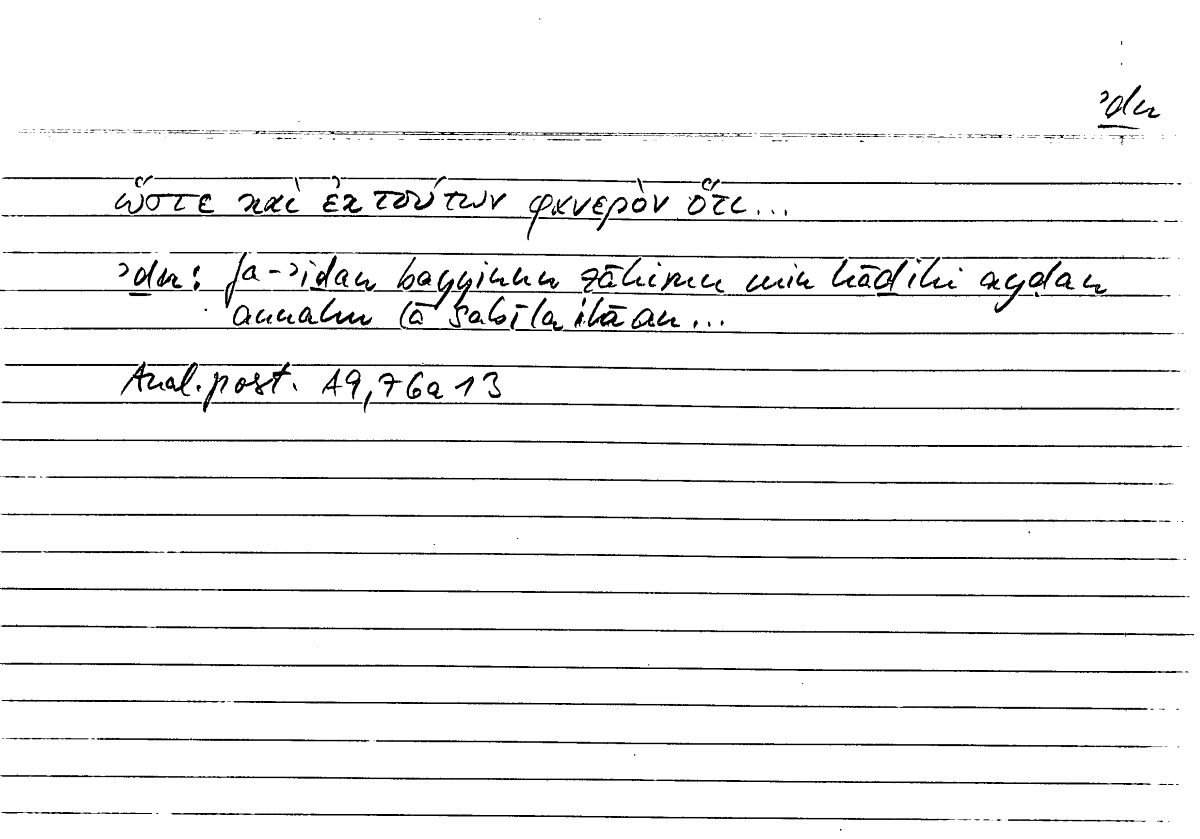 ʾḏn
ὥστε καὶ ἐκ τούτων φανερὸν ὅτι...
ʾḏn: fa-ʾiḏan bayyinun ẓāhirun min hāḏihi ayḍan
annahu lā sabīla ilā an...
Anal. post. A9, 76a 13